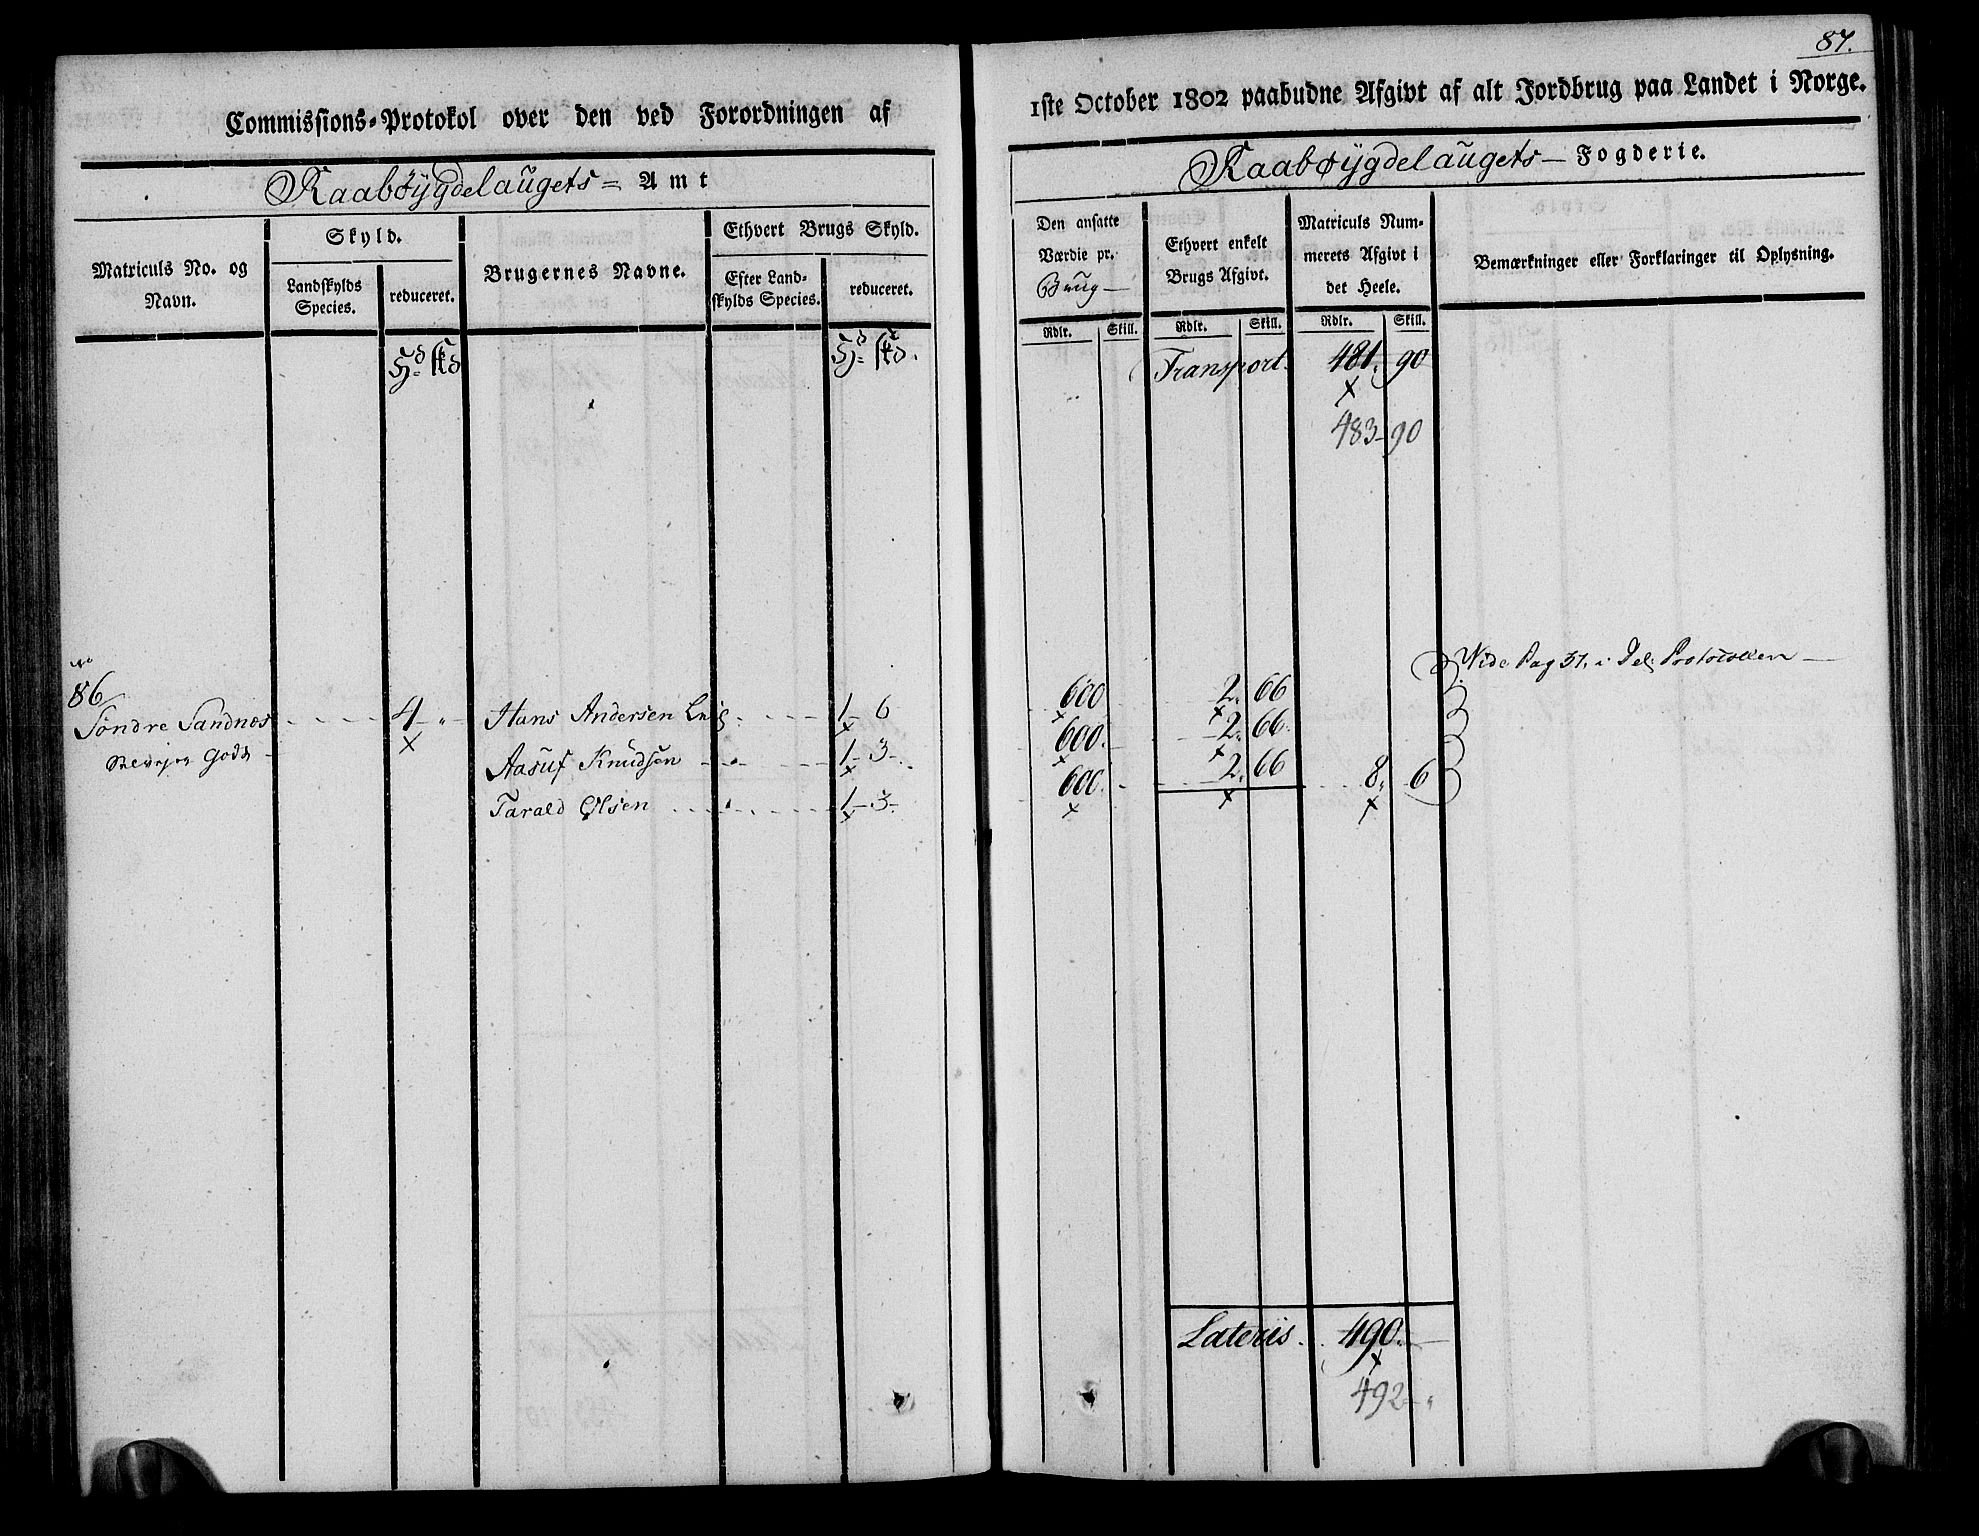 87.
Commissions-Protokol over den ved Forordningen af
1ste October 1802 paabudne Afgivt af alt Jordbrug paa Landet i Norge.
Raabøygdelaugets = Amt
Raabøygdelaugets — Fogderie.
Matriculs No. og Navn.
Skyld.
Landskylds Species.
reduceret.
Brugernes Navne.
Ethvert Brugs Skyld.
Efter Landskylds Species.
reduceret.
Den ansatte Værdie pr. Brug —
Ethvert enkelt Brugs Afgivt.
Matriculs Nummerets Afgivt i det Heele.
Bemærkninger eller Forklaringer til Oplysning.
Rdlr. Skill. Rdlr. Skill. Rdlr. Skill.
Transport. 481. 90
483 - 90
No
86
Vide Pag 37. i Del. Protocollen —
Søndre Sandnes 4 - " Hans Andersen 1 - 6 600 2. 66
Godts Aasuf Knudsen 1 - 3 - 600. 2. 66.
Tarald Olsen 1 - 3 - 600. 2. 66 8. 6
Lateris. 490. —
492 - "